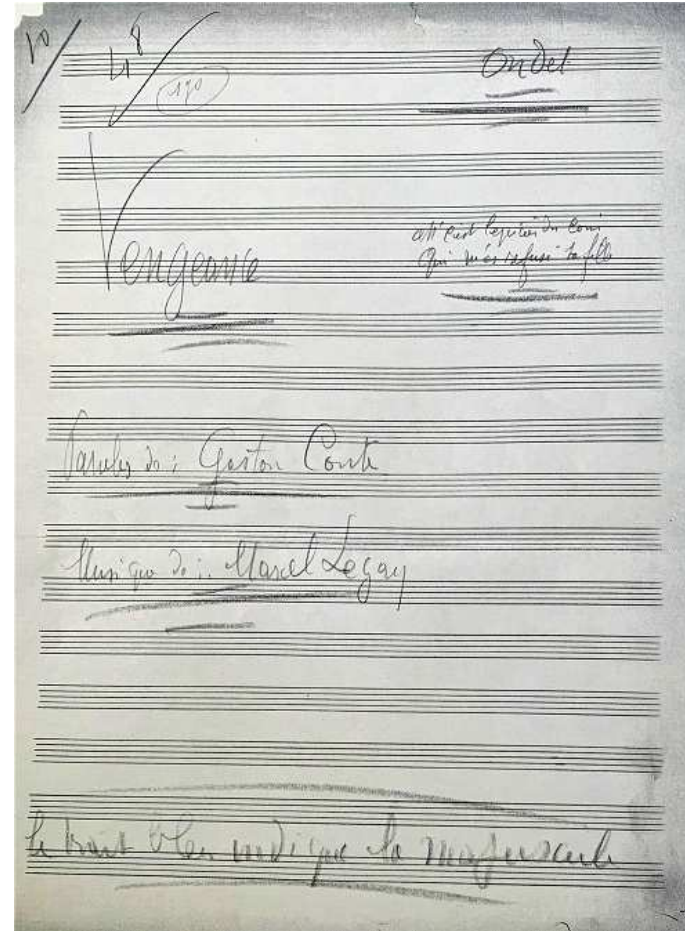 10/ 48/
190
Ondet
Vengeance
c'est l'épicier du coin
Qui m'as refusé sa fille
Paroles de : Gaston Couté
Musique de : Marcel Legay
le trait bleu indique la majuscule